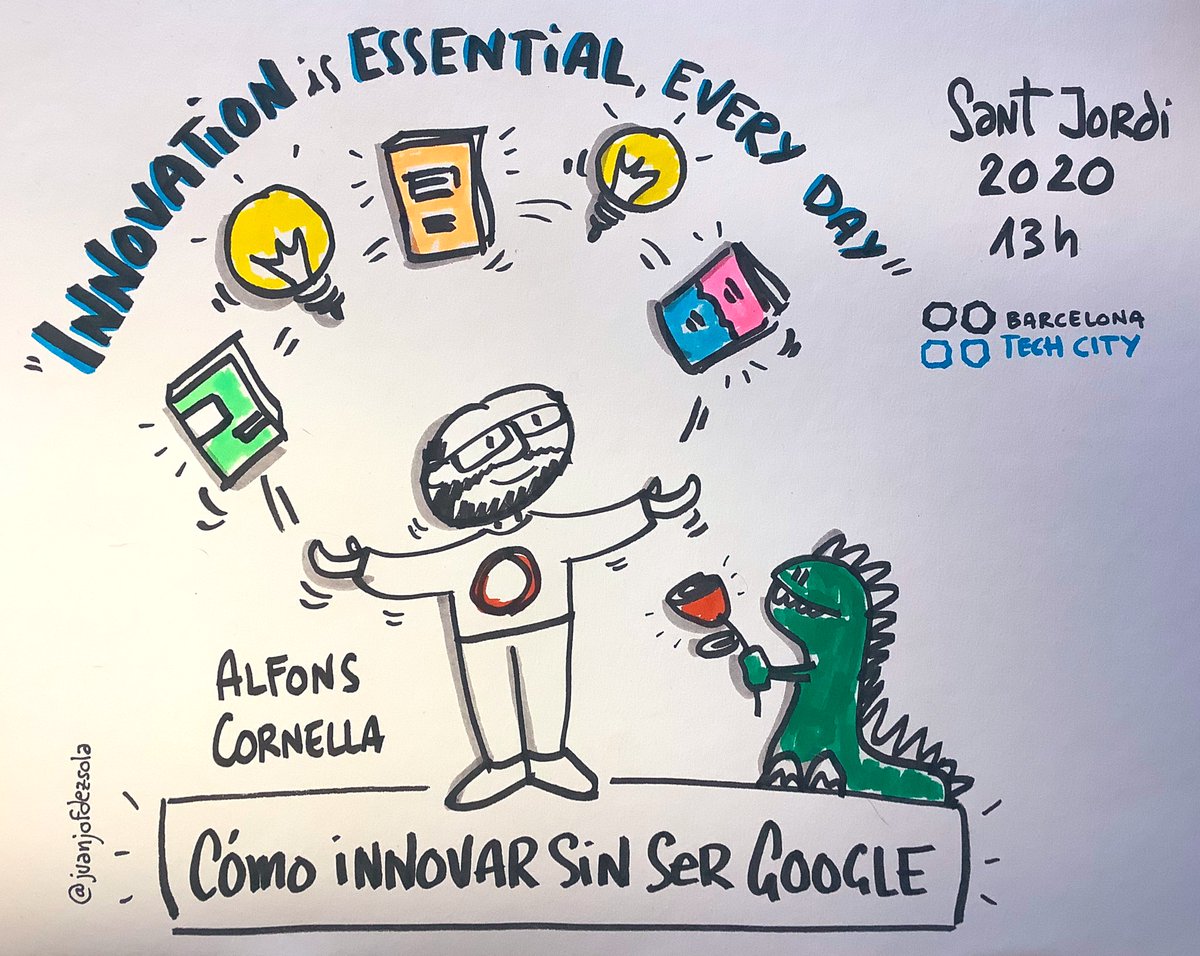 "INNOVATION is ESSENTIAL, EVERY DAY"
Sant Jordi
2020
13h
BARCELONA
TECH CITY
ALFONS
CORNELLA
@juanjofdezsola
Cómo iNNOVAR SiN SeR GOOGLE